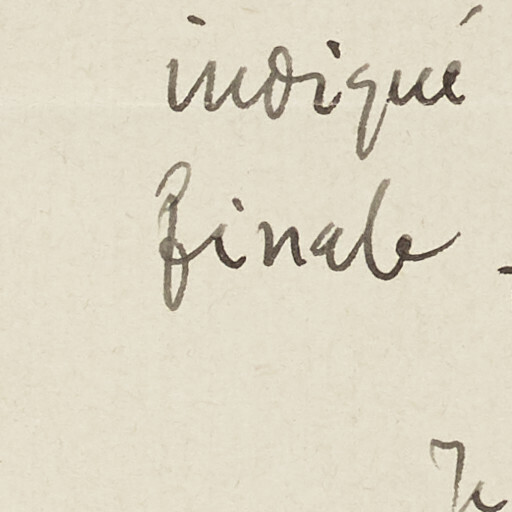 indiqué
finale -
Je